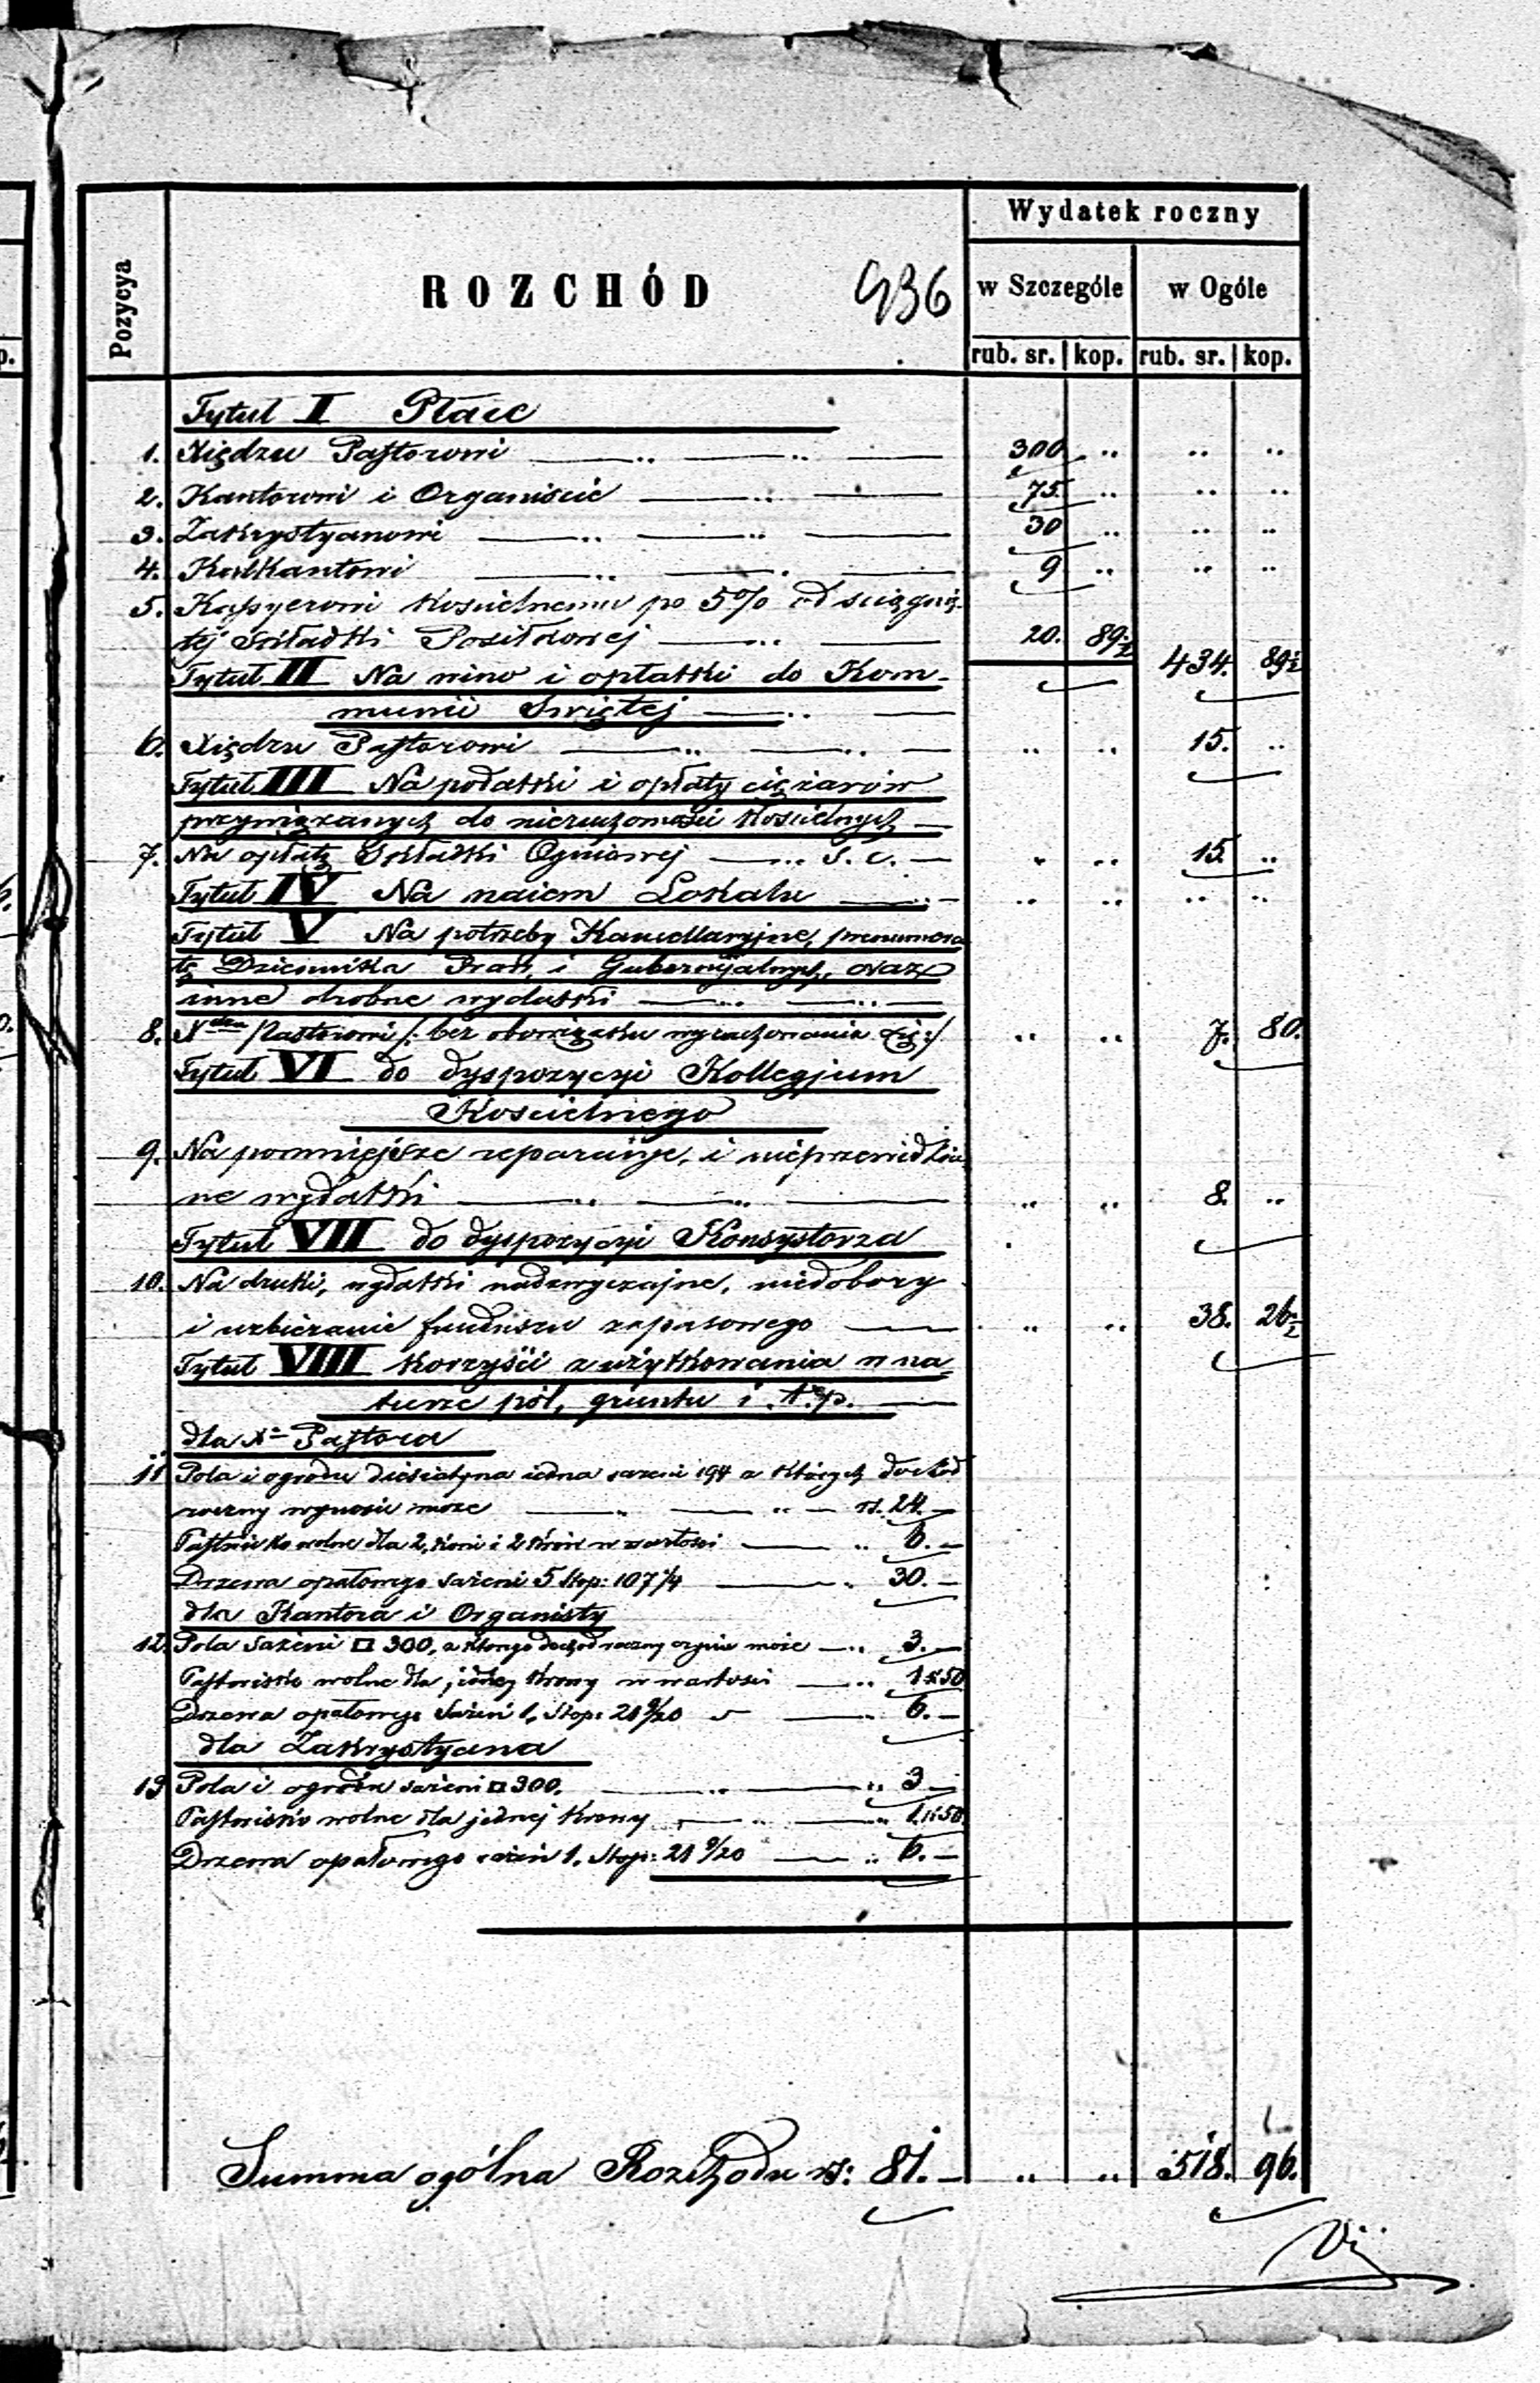 Wydatek roczny
Pozycya
ROZCHÓD
436
w Szczególe
w Ogóle
rub. sr. kop. rub. sr. kop.
Tytuł I Płace
1. Xiędzu Pastorowi 300 „ „ „
2. Kantorowi i Organiście 75. „ „ „
3. Zakrystyanowi 30 „ „ „
4. Kalkantowi 9 „ „ „
5. Kassyerowi Kościelnemu po 5% od ściągnię-
tej Składki Posiłkowej 20. 89½ 434. 89½
Tytuł II Na wino i opłatki do Kom-
munii Świętej
6. Xiędzu Pastorowi „ „ 15. „
Tytuł III Na podatki i opłaty ciężarów
przywiązanych do nieruchomości Kościelnych
7. Na opłatę Składki Ogniowej „ „ 15. „
Tytuł IV Na naiem Lokalu „ „ „ „
Tytuł V Na potrzeby Kancellaryjne, prenumera
tę Dziennika Praw, i Gubernijalnych, oraz
inne drobne wydatki
8. Pastorowi /: bez obowiązku wyrachowania się :/ „ „ 7. 80.
Tytuł VI do dyspozycyi Kollegjum
Kościelnego
9. Na pomniejsze reparacye, i nieprzewidzia
ne wydatki „ „ 8. „
Tytuł VII do dyspozycyi Konsystorza
10. Na druki, wydatki nadzwyczajne, niedobory
i uzbieranie funduszu zapasowego „ „ 38. 26½
Tytuł VIII Korzyści z użytkowania w na
turze pól, gruntu i t. p.
dla Xa Pastora
11 Pola i ogrodu diesiatyna iedna sazeni 194 z których dochód
roczny wynosić może rs. 24. —
Pastwisko wolne dla 2, koni i 2 krów w wartości „ 6. —
Drzewa opałowego sażeni 5 stop: 107¼ „ 30. —
dla Kantora i Organisty
12. Pola sażeni □ 300, z którego dochód roczny czynić może „ 3. —
Pastwisko wolne dla jednej krowy w wartości „ 1 k 50
Drzewa opałowego Sażeń 1, stop: 21 9/20 „ 6. —
dla Zakrystyana
13 Pola i ogrodu sażeni □ 300. „ 3 —
Pastwisko wolne dla jednej krowy „ 1. k 50
Drzewa opałowego sażeń 1. stop: 21 9/20 „ 6. —
Summa ogólna Rozchodu rs: 81. — „ „ 518. 96.